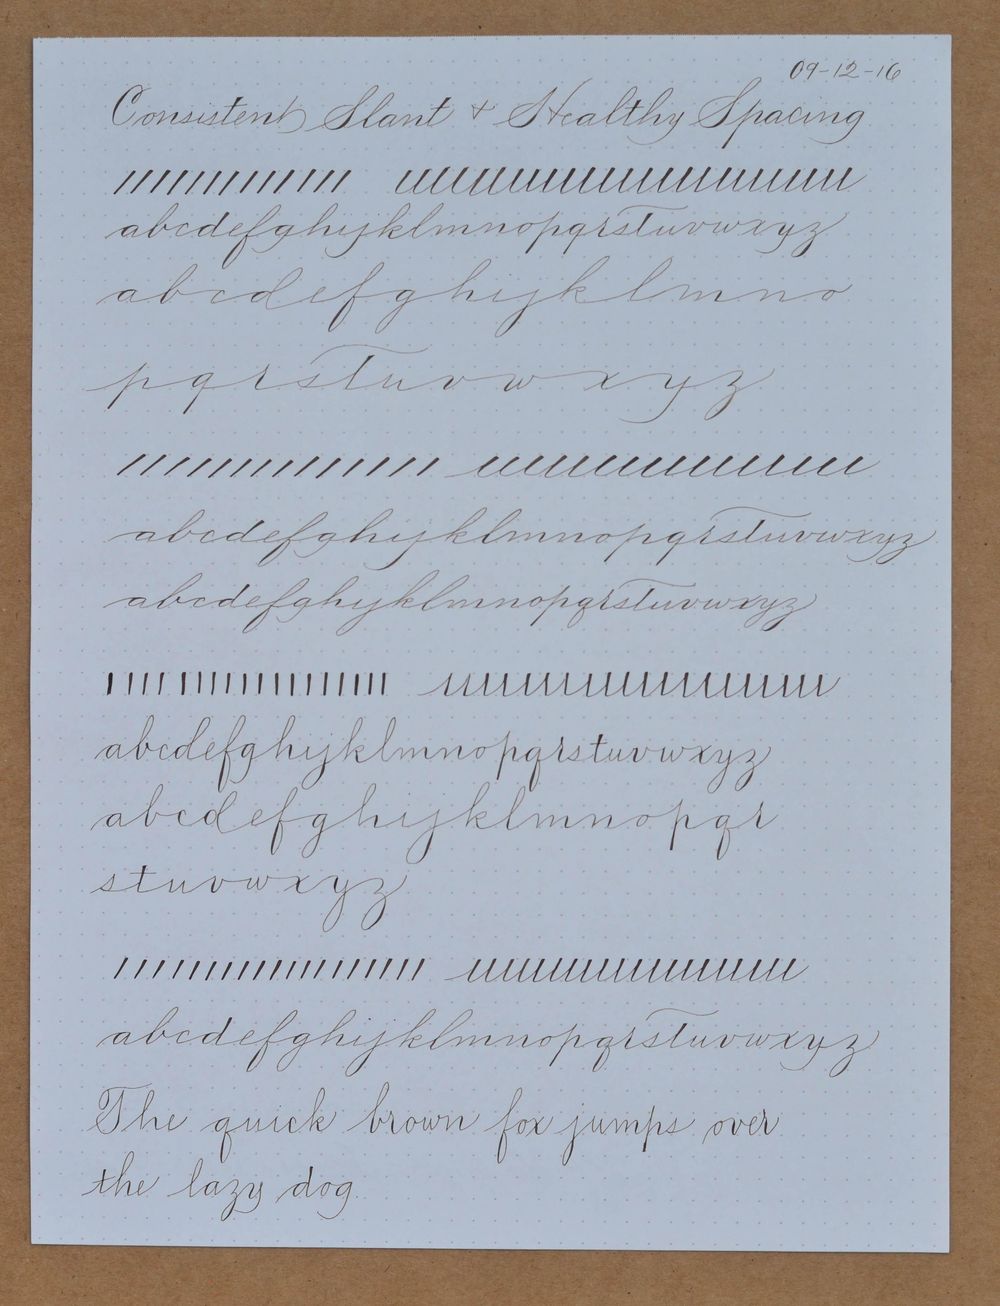 09-12-16
Consistent Slant & Healthy Spacing
abcdefghijklmnopqrstuvwxyz
abcdefghijklmno
pqrstuvwxyz
abcdefghijklmnopqrstuvwxyz
abcdefghijklmnopqrstuvwxyz
abcdefghijklmnopqrstuvwxyz
abcdefghijklmnopqr
stuvwxyz
abcdefghijklmnopqrstuvwxyz
The quick brown fox jumps over
the lazy dog.